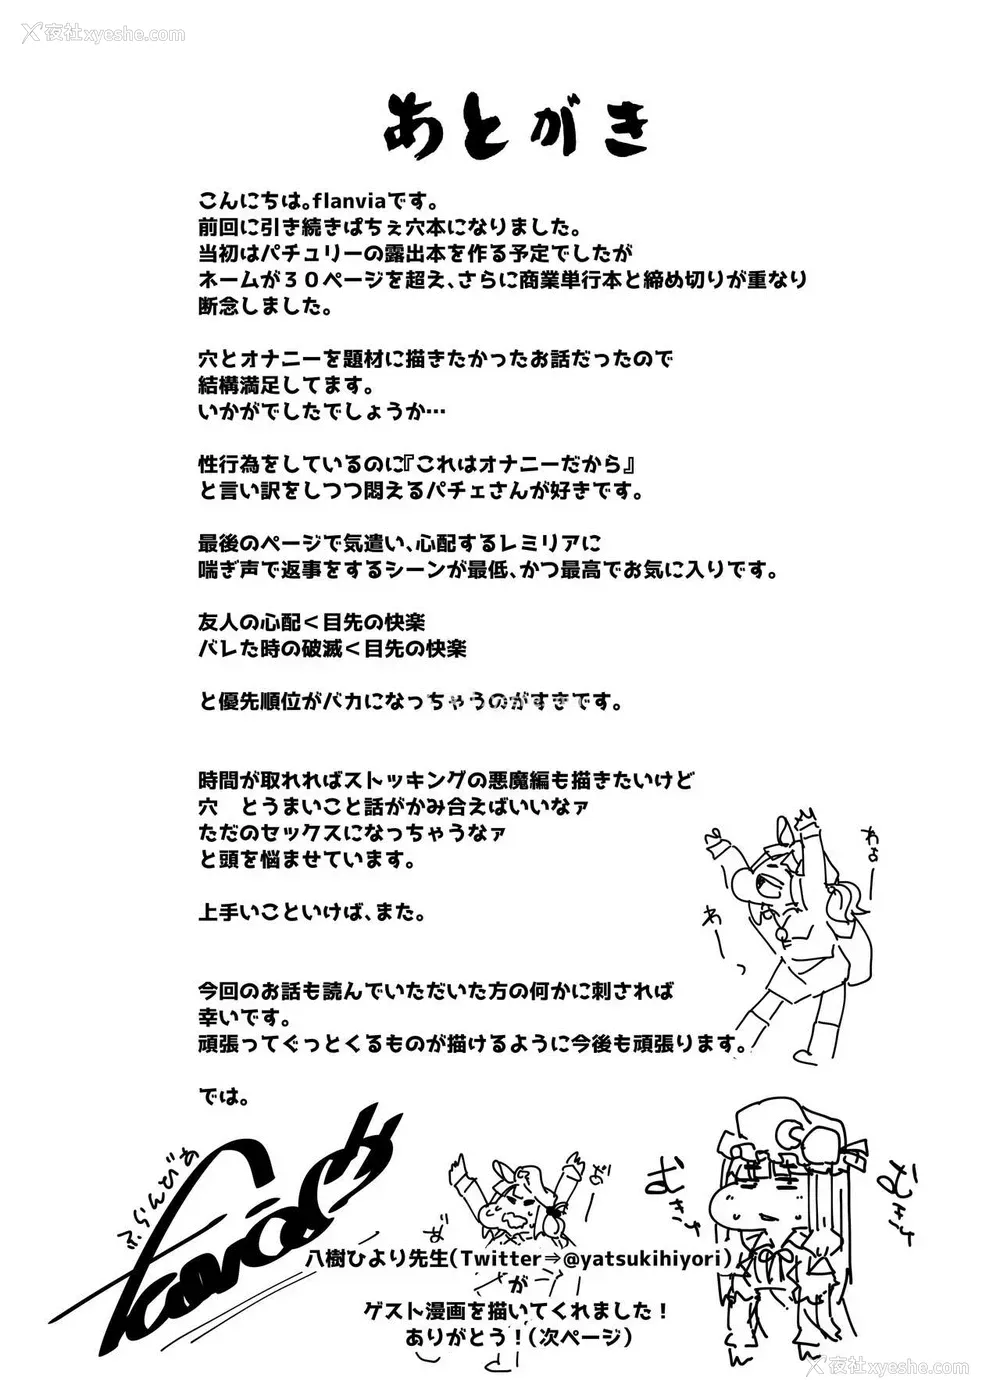 夜社xyeshe.com
あとがき
こんにちは。flanviaです。
前回に引き続きぱちぇ穴本になりました。
当初はパチュリーの露出本を作る予定でしたが
ネームが３０ページを超え、さらに商業単行本と締め切りが重なり
断念しました。
穴とオナニーを題材に描きたかったお話だったので
結構満足してます。
いかがでしたでしょうか…
性行為をしているのに『これはオナニーだから』
と言い訳をしつつ悶えるパチェさんが好きです。
最後のページで気遣い、心配するレミリアに
喘ぎ声で返事をするシーンが最低、かつ最高でお気に入りです。
友人の心配＜目先の快楽
バレた時の破滅＜目先の快楽
と優先順位がバカになっちゃうのがすきです。
時間が取れればストッキングの悪魔編も描きたいけど
穴　とうまいこと話がかみ合えばいいなァ
ただのセックスになっちゃうなァ
と頭を悩ませています。
上手いこといけば、また。
わぁー
わーっ
今回のお話も読んでいただいた方の何かに刺されば
幸いです。
頑張ってぐっとくるものが描けるように今後も頑張ります。
では。
ふらんびあ
むきゅ
むきゅ
八樹ひより先生(Twitter⇒@yatsukihiyori)
が
ゲスト漫画を描いてくれました！
ありがとう！(次ページ)
夜社xyeshe.com